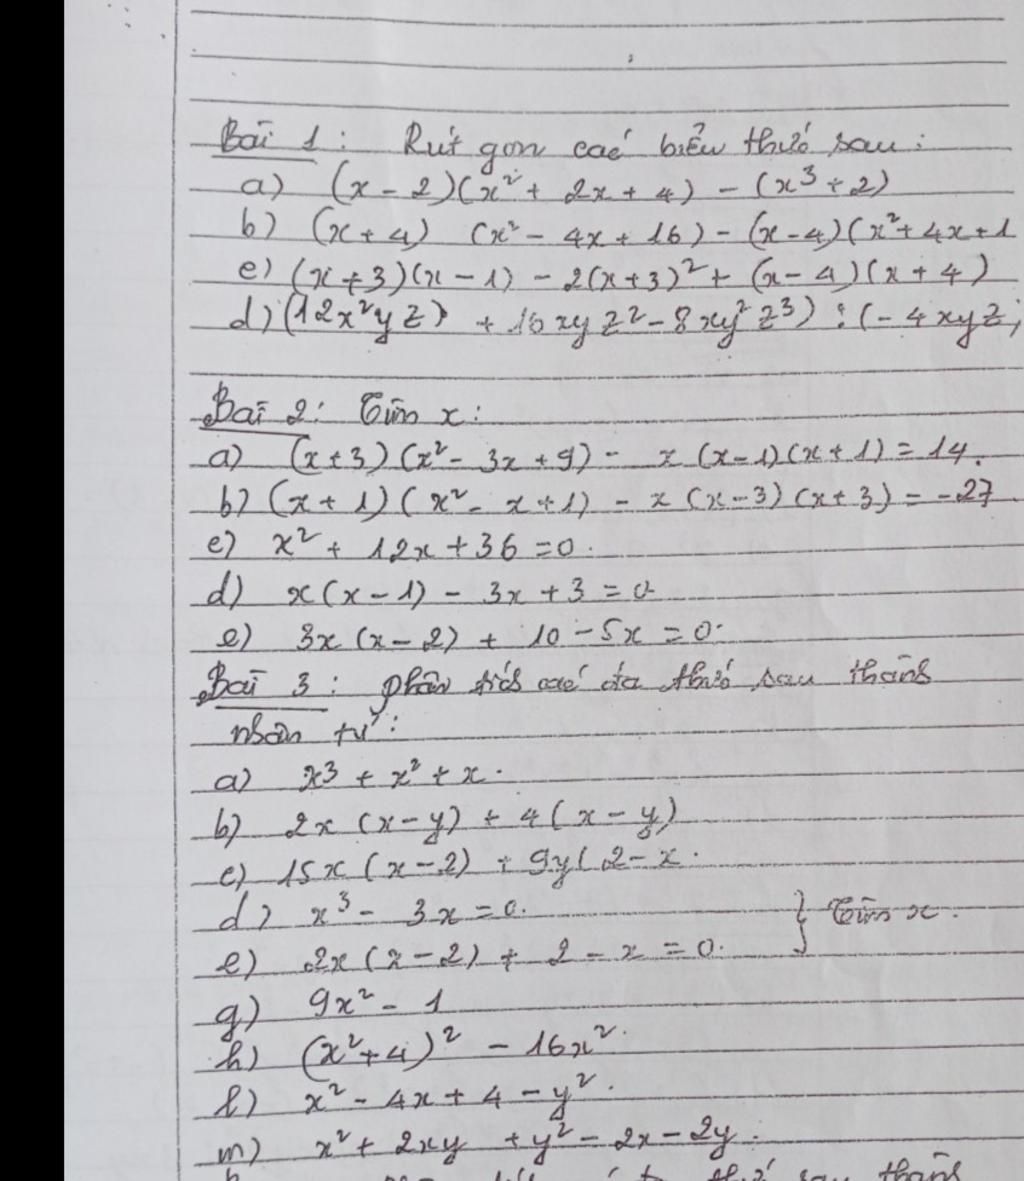 Bài 1: Rút gọn các biểu thức sau:
a) (x - 2)(x² + 2x + 4) - (x³ + 2)
b) (x + 4) (x² - 4x + 16) - (x - 4)(x² + 4x + 1
c) (x + 3)(x - 1) - 2(x + 3)² + (x - 4)(x + 4)
d) (12x²yz) + 16xyz² - 8xy²z³) : (- 4xyz)
Bài 2: Tìm x:
a) (x + 3)(x² - 3x + 9) - x(x - 1)(x + 1) = 14.
b) (x + 1)(x² - x + 1) - x(x - 3)(x + 3) = -27
c) x² + 12x + 36 = 0.
d) x(x - 1) - 3x + 3 = 0.
e) 3x(x - 2) + 10 - 5x = 0.
Bài 3: phân tích các đa thức sau thành
nhân tử:
a) x³ + x² + x.
b) 2x(x - y) + 4(x - y)
c) 15x(x - 2) + 9y(2 - x.
d) x³ - 3x = 0. } Tìm x.
e) 2x(x - 2) + 2 - x = 0.
g) 9x² - 1
h) (x² + 4)² - 16x².
l) x² - 4x + 4 - y².
m) x² + 2xy + y² - 2x - 2y.
thức sau thành